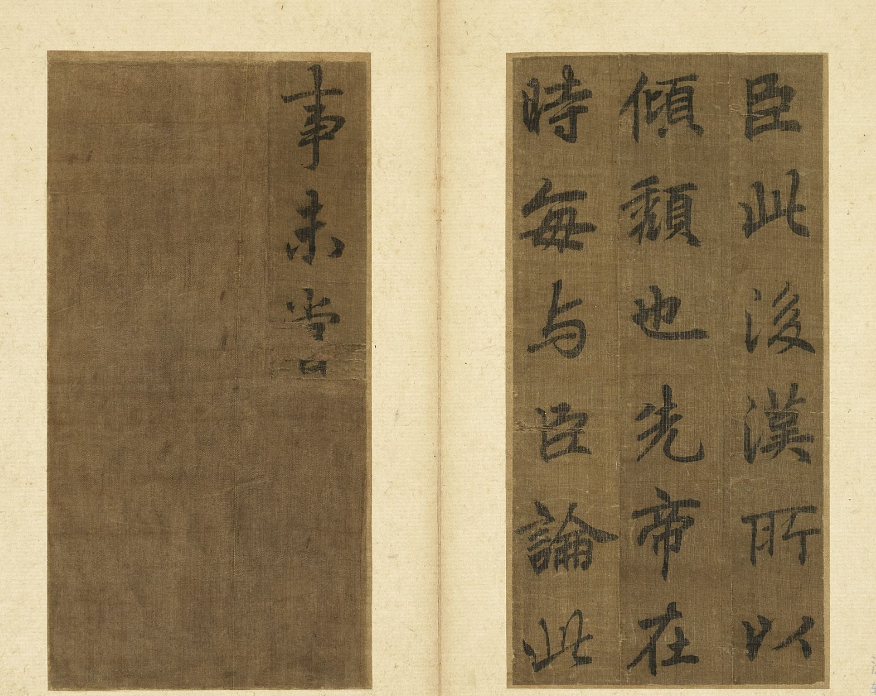 臣此後漢所以
傾頹也先帝在
時每与臣論此
事未嘗